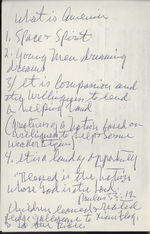 What is America
1. Space & Spirit
2. Young Men dreaming
dreams
3. It is Compassion and
the willingness to lend
a helping hand
(Greatness of a Nation based on
willingness to help some
weaker
4. It is a land of opportunity
"Blessed is the nation
whose God is the Lord."
Psalm 33:12
Children learned & recited
pledge allegiance to